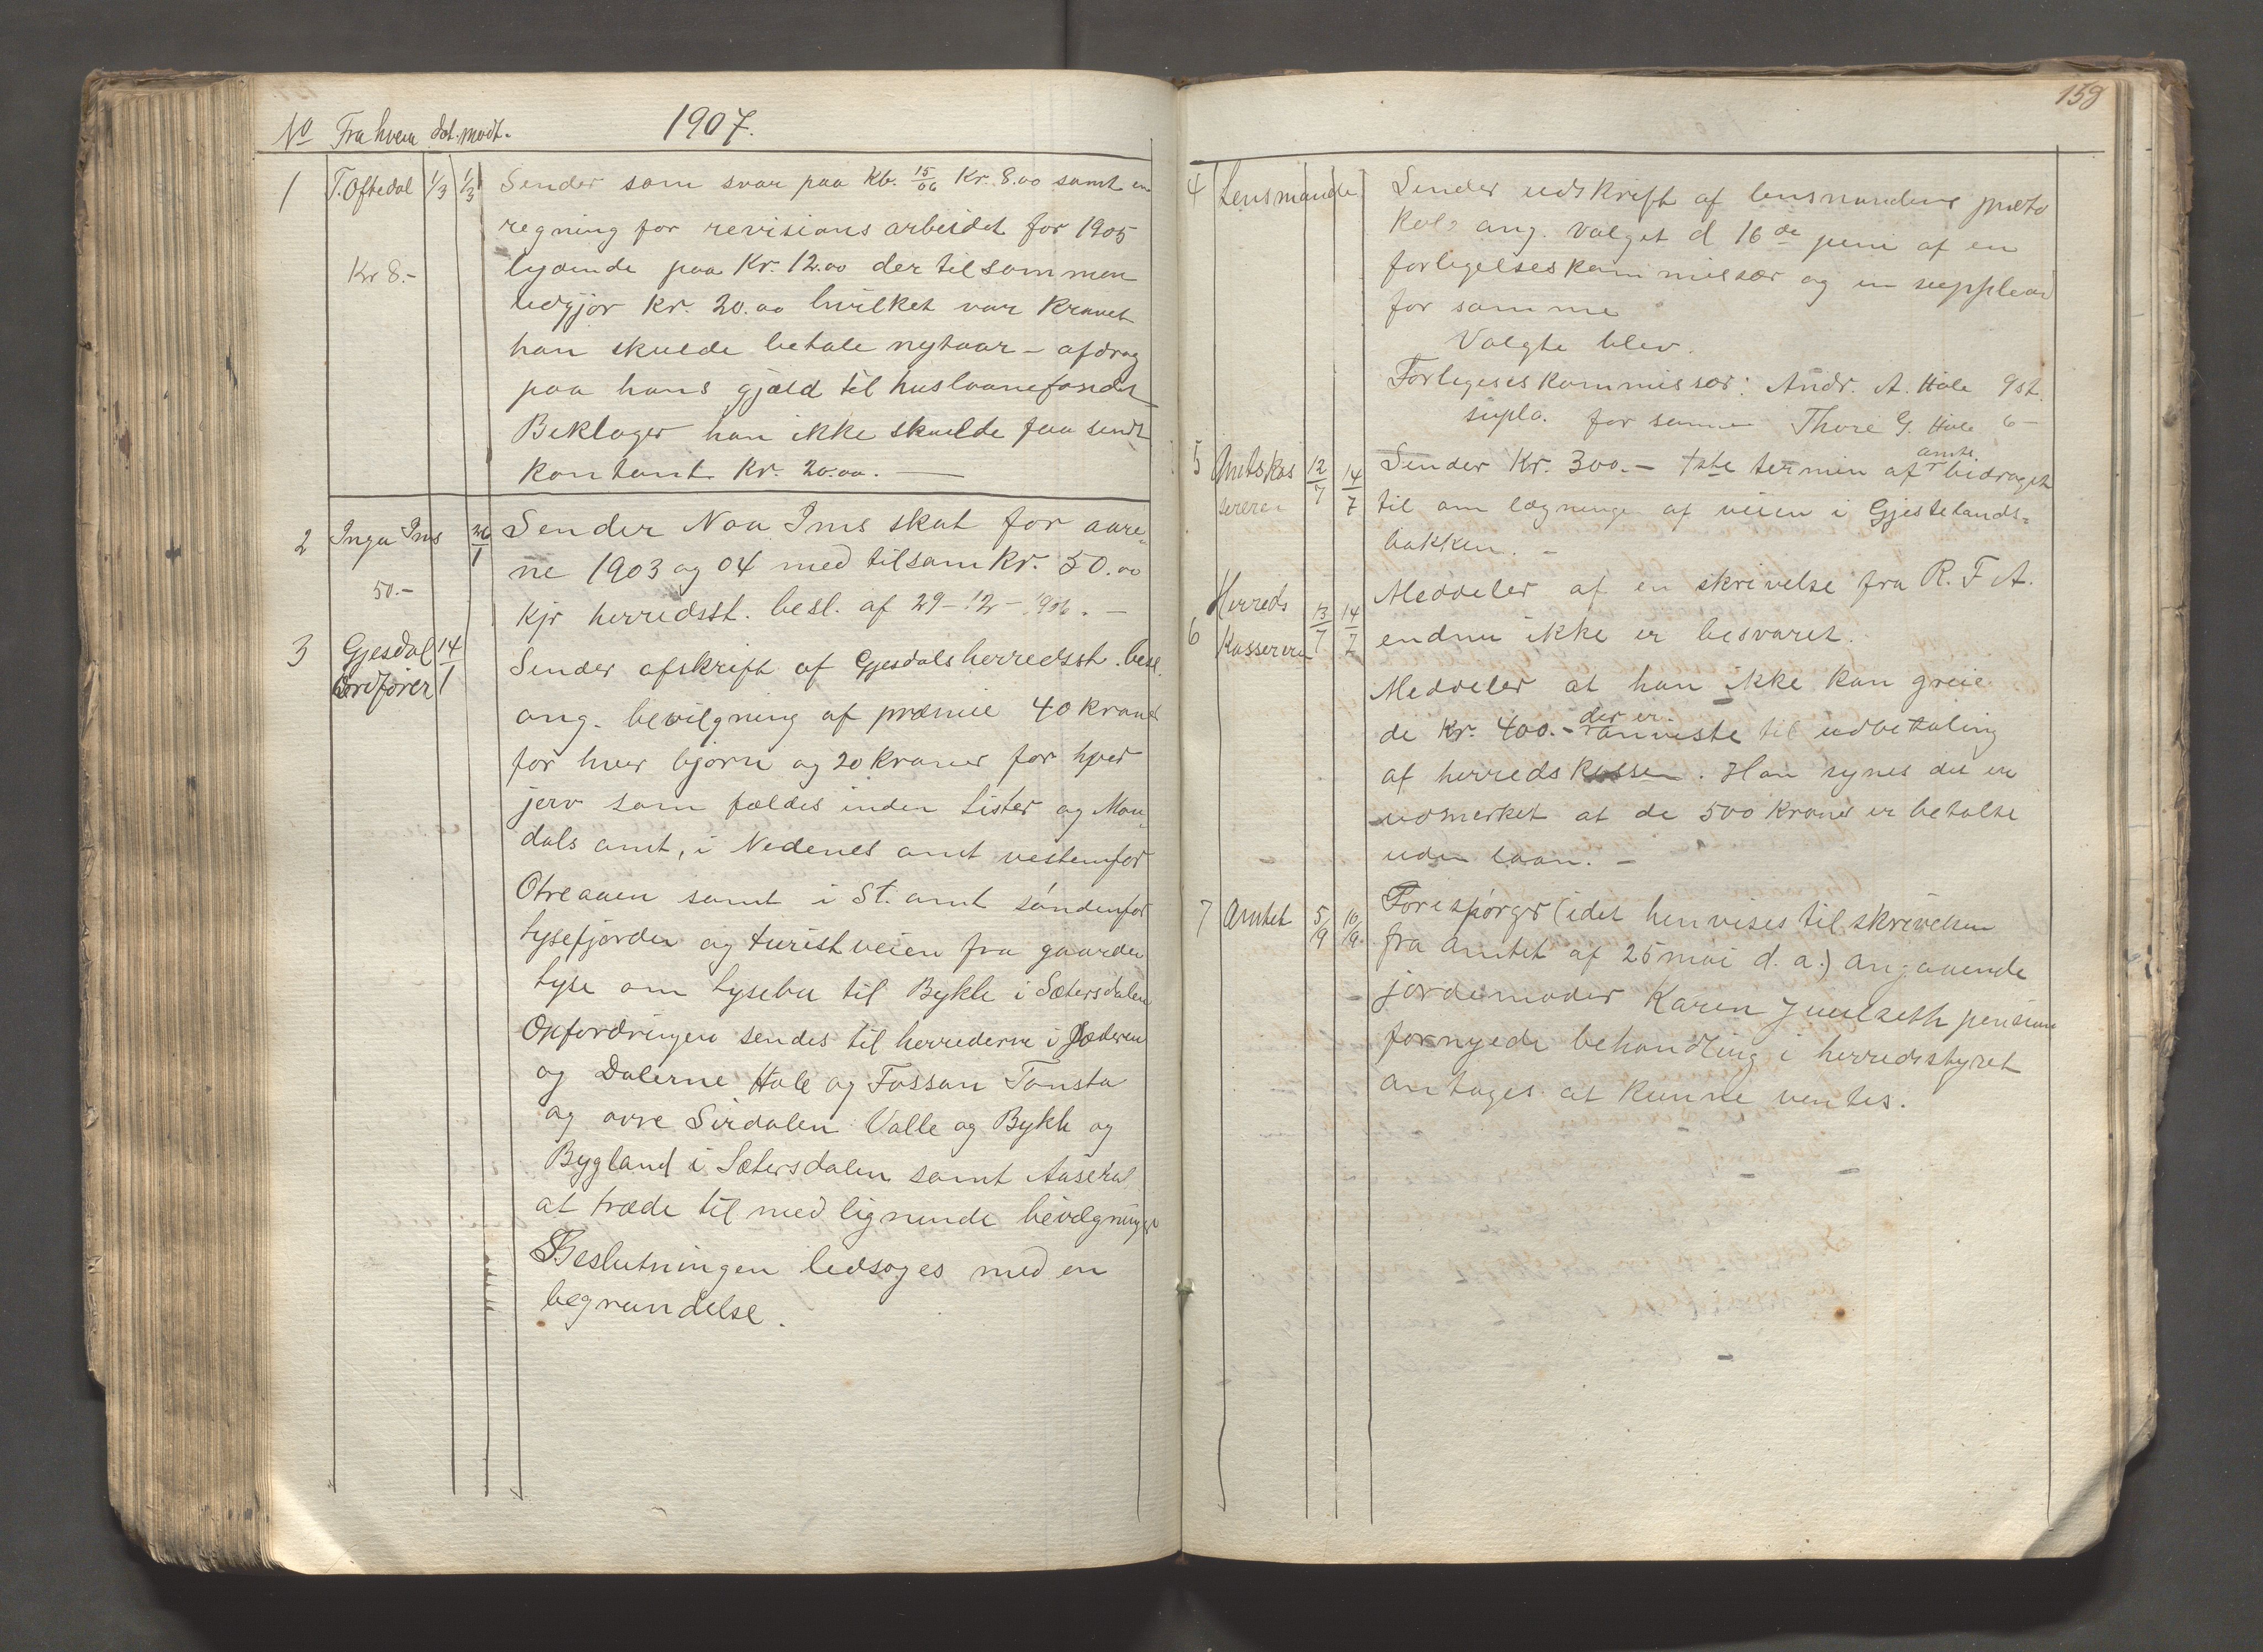 No Fra hvem dat. modt. 1907.
1 T. Oftedal 1/3 1/3 Sender som svar paa Kb. 15/06 Kr. 8.00 samt en
regning for revisions arbeidet for 1905
Kr 8.- lydende paa Kr. 12.00 der tilsammen
udgjør Kr. 20.00 hvilket var kravet
han skulde betale nytaar - afdrag
paa hans gjæld til huslaanefondet
Beklager han ikke skulde faa sendt
kontant Kr. 20.00. —
2 Inga Ims 26/1 Sender Noa Ims skat for aare-
50.- ne 1903 og 04 med tilsam Kr. 50.00
Kfr herredsst. besl. af 29-12-1906. -
3 Gjesdal 14/1 Sender afskrift af Gjesdals herredsst. besl.
Ordfører ang. bevilgning af præmie 40 kroner
for hver bjørn og 20 kroner for hver
jerv som fældes inden Lister og Man-
dals amt, i Nedenes amt vestenfor
Otreaaen samt i St. amt søndenfor
Lysefjorden og turistveien fra gaarden
Lyse om Lysebu til Bykle i Sætersdalen
Opfordringen sendes til herrederne i Jæderen
og Dalerne Hole og Fossan Tonsta
og øvre Sirdalen Valle og Bykle og
Bygland i Sætersdalen samt Aaseral
at træde til med lignende bevilgninger
Beslutningen ledsages med en
begrundelse.
158
4 Lensmanden Sender udskrift af lensmandens proto
kol ang. valget d 16de juni af en
forligelseskommissær og en suppleant
for samme
Valgte blev.
Forligeseskommissær: Andr. A. Hole 9 st.
supl. for samme Thore G. Hole 6 -
5 Amtskas 12/7 14/7 Sender Kr. 300.- 1ste termin af amts. bidraget
sereren til omlægningen af veien i Gjestelands-
bakken. -
Herreds 13/7 14/7 Meddeler af en skrivelse fra R. F. A.
6 Kasserere endnu ikke er besvaret.
Meddeler at han ikke kan greie
de Kr. 400.- der er anviste til udbetaling
af herredskassen. Han synes det er
udmerket at de 500 kroner er betalte
uden laan. -
7 Amtet 5/9 10/9 Forespørger (idet henvises til skrivelsen
fra amtet af 25 mai d. a.) angaaende
jordemoder Karen pension
fornyede behandling i herredsstyret
antages at kunne ventes.